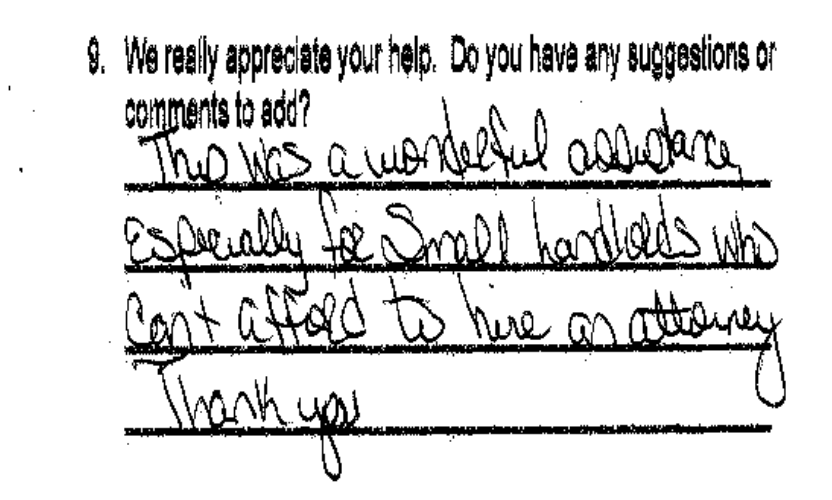 9. We really appreciate your help. Do you have any suggestions or
comments to add?
This was a wonderful assistance,
Especially for Small landlords who
Can't afford to hire an attorney
Thank you